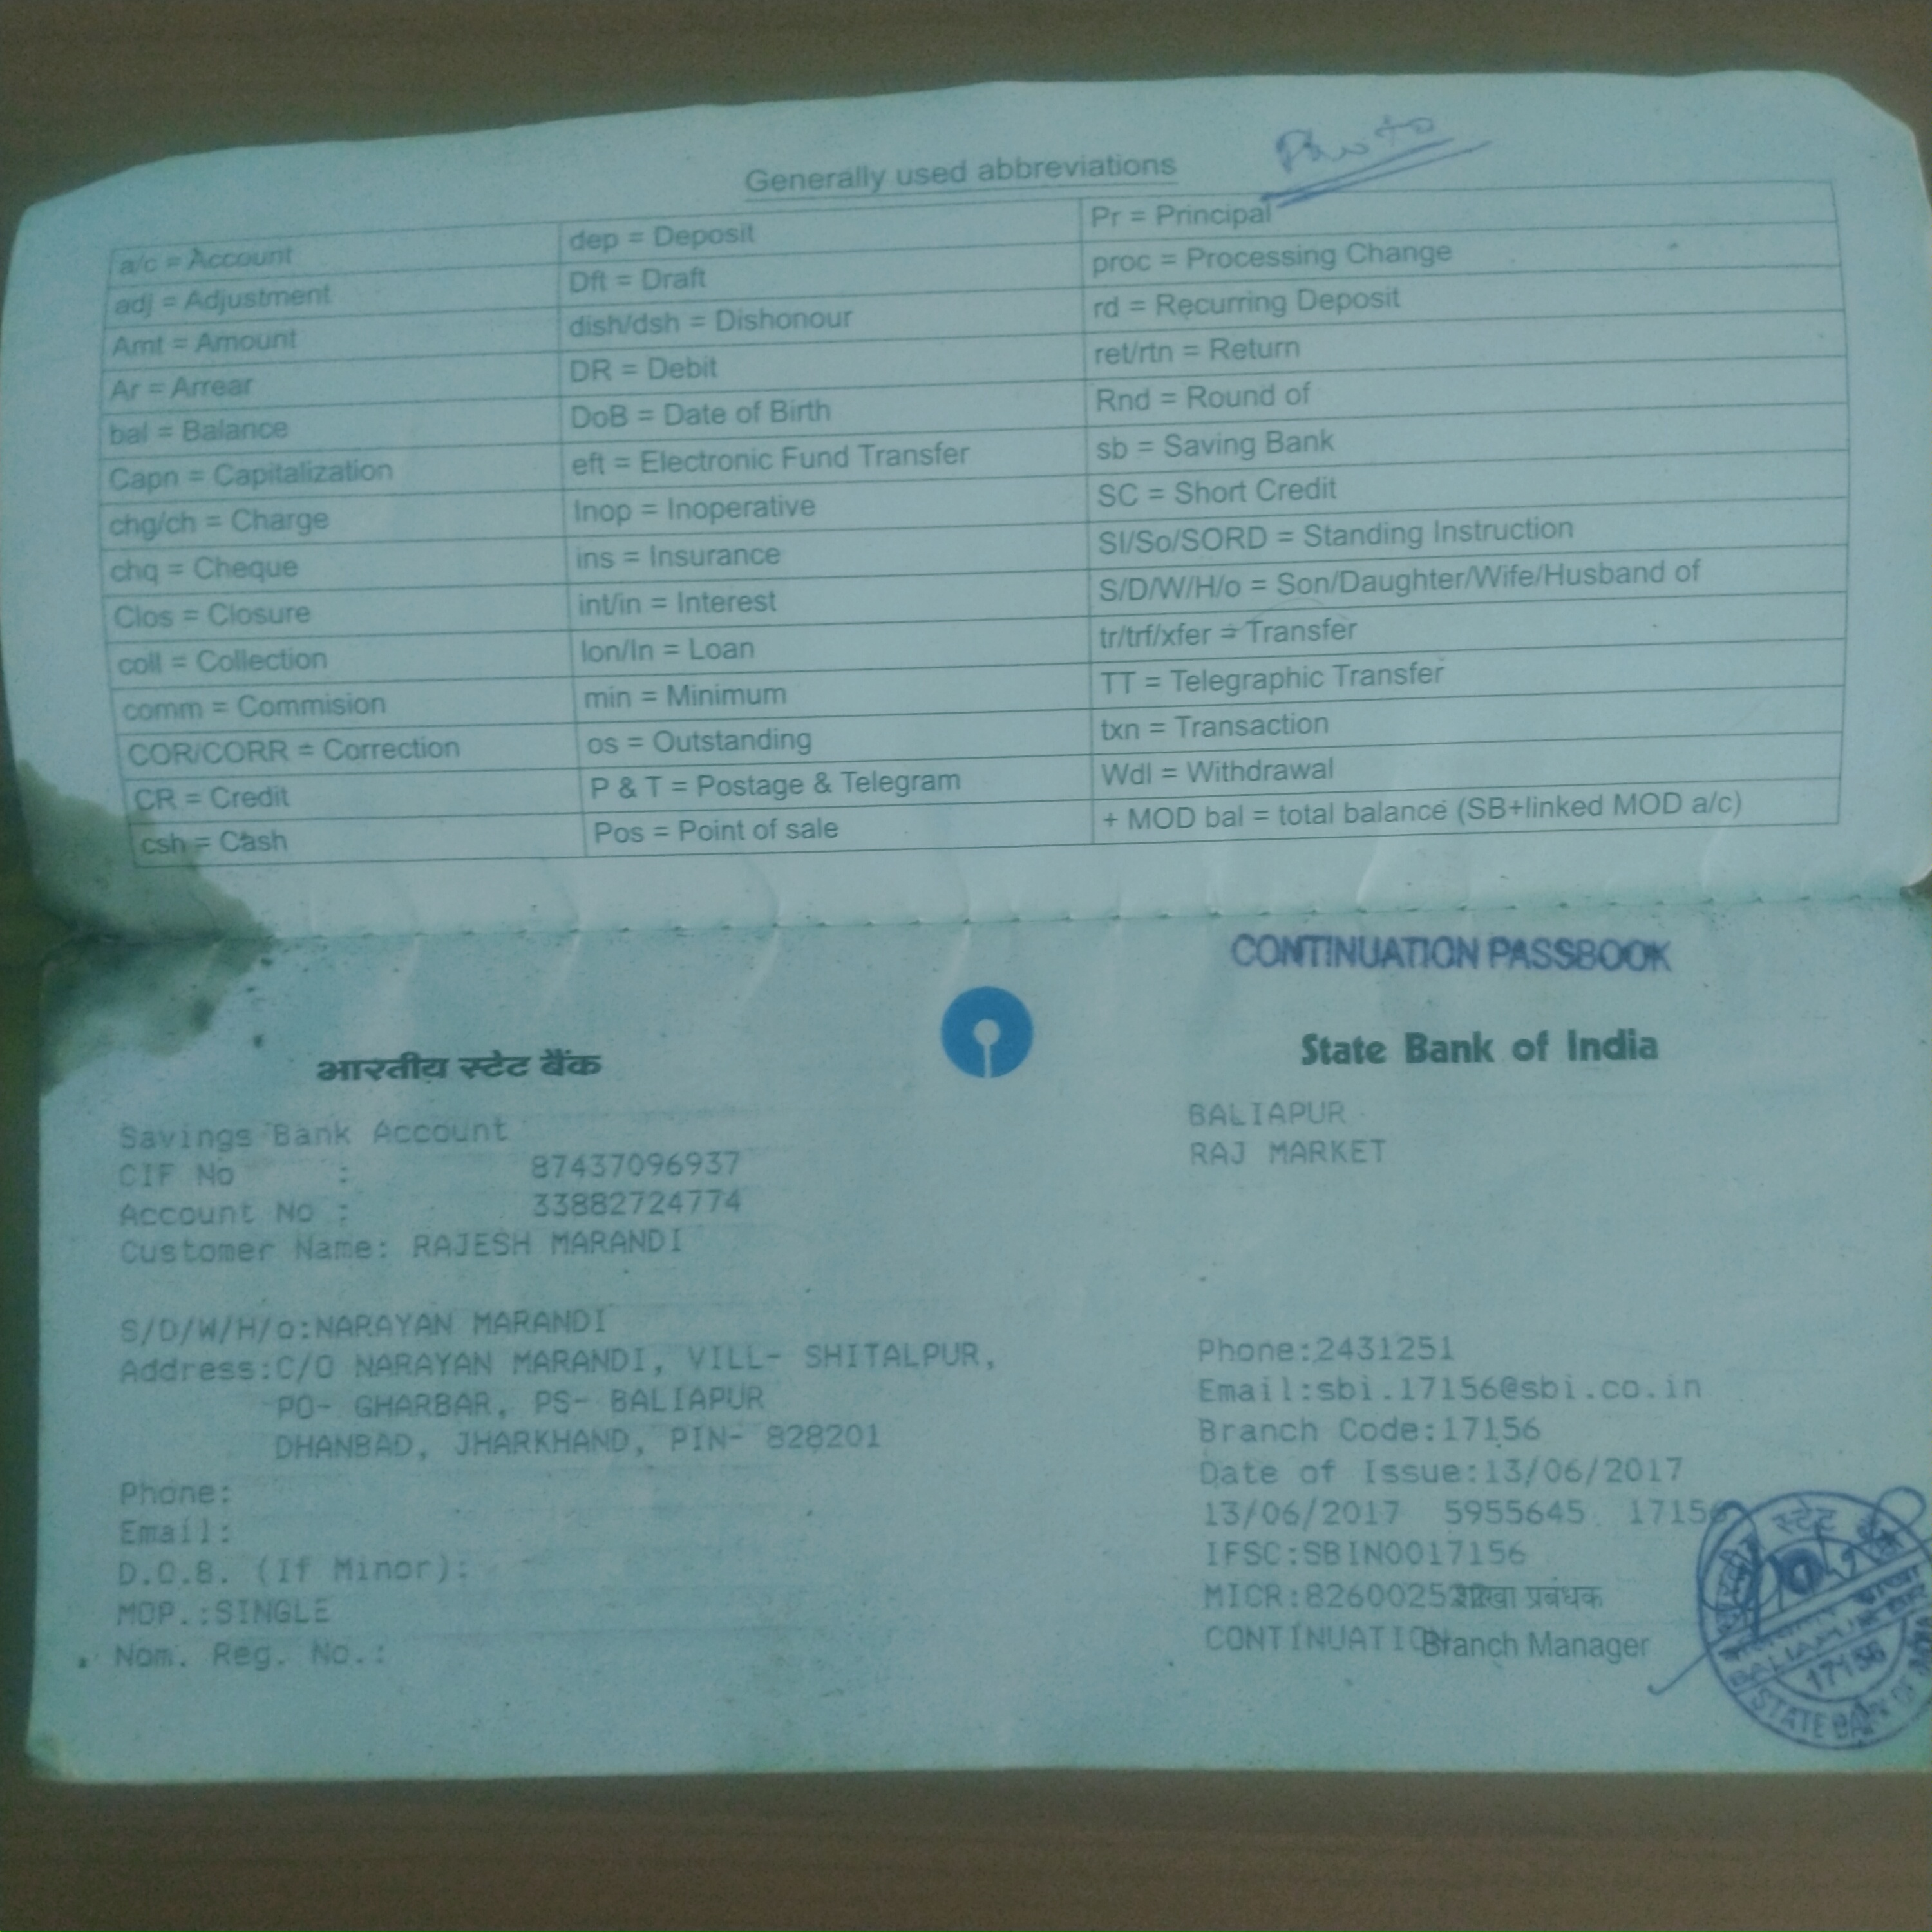 Generally used abbreviations
a/c = Account
adj = Adjustment
Amt = Amount
Ar = Arrear
bal = Balance
Capn = Capitalization
chg/ch = Charge
chq = Cheque
Clos = Closure
coll = Collection
comm = Commision
COR/CORR = Correction
CR = Credit
csh = Cash
dep = Deposit
Dft = Draft
dish/dsh = Dishonour
DR = Debit
DoB = Date of Birth
eft = Electronic Fund Transfer
Inop = Inoperative
ins = Insurance
int/in = Interest
lon/ln = Loan
min = Minimum
os = Outstanding
P & T = Postage & Telegram
Pos = Point of sale
Pr = Principal
proc = Processing Change
rd = Recurring Deposit
ret/rtn = Return
Rnd = Round of
sb = Saving Bank
SC = Short Credit
SI/So/SORD = Standing Instruction
S/D/W/H/o = Son/Daughter/Wife/Husband of
tr/trf/xfer = Transfer
TT = Telegraphic Transfer
txn = Transaction
Wdl = Withdrawal
+ MOD bal = total balance (SB+linked MOD a/c)
CONTINUATION PASSBOOK
भारतीय स्टेट बैंक
State Bank of India
Savings Bank Account
CIF No : 87437096937
Account No : 33882724774
Customer Name: RAJESH MARANDI
S/D/W/H/o:NARAYAN MARANDI
Address:C/O NARAYAN MARANDI, VILL- SHITALPUR,
PO- GHARBAR, PS- BALIAPUR
DHANBAD, JHARKHAND, PIN- 828201
Phone:
Email:
D.O.B. (If Minor):
MOP.:SINGLE
Nom. Reg. No.:
BALIAPUR
RAJ MARKET
Phone:2431251
Email:sbi.17156@sbi.co.in
Branch Code:17156
Date of Issue:13/06/2017
13/06/2017 5955645 17156
IFSC:SBIN0017156
MICR: शाखा प्रबंधक
CONTINUATION Branch Manager
स्टेट
BALIAPUR
17156
STATE BANK OF